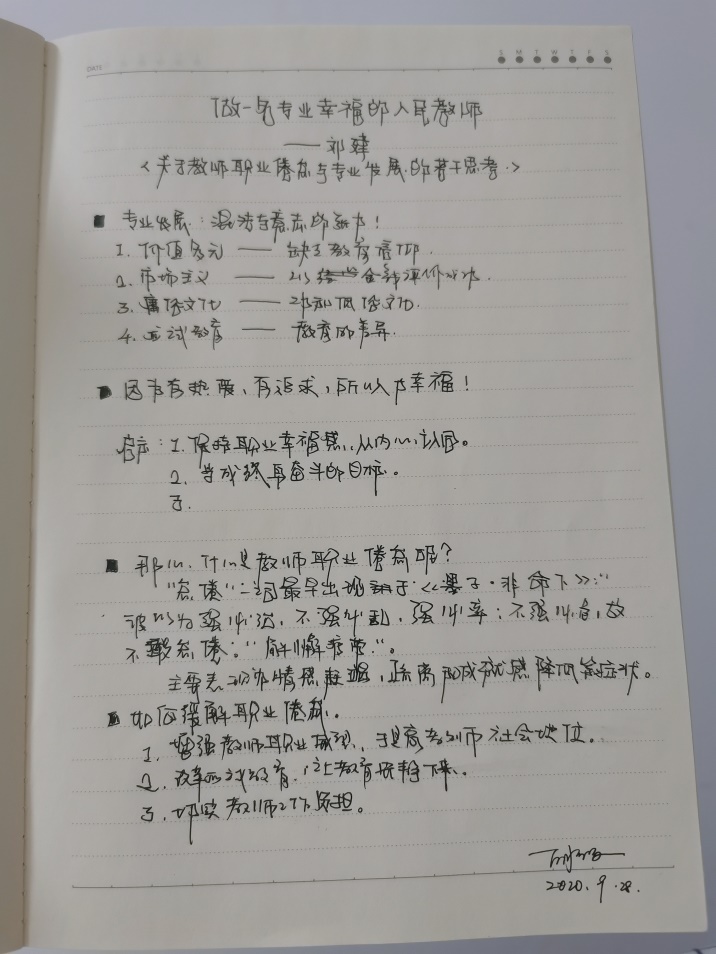 DATE
S M T W T F S
做一名专业幸福的人民教师
——邓建
<关于教师职业倦怠与专业发展的若干思考>
专业发展:
1. 价值多元 —— 缺乏教育信仰.
2. 市场主义 —— 以金钱评价
3. 庸俗文化 —— 低俗文化.
4. 应试教育 —— 教育的差异.
因为有热爱,有追求,所以才幸福!
启示:1. 保持职业幸福感,从内心认同。
2. 终身奋斗的目标。
3.
那么,什么是教师职业倦怠呢?
"怠倦"二词最早出现于《墨子·非命下》:"
彼以为强必治,不强必乱,强必宁;不强必危,故
不敢怠倦。"
主要表现为情感,疏离和成就感降低等症状。
如何缓解职业倦怠。
1. 增强教师职业,提高教师社会地位。
2. 改革应试教育,让教育安静下来。
3. 切实教师工作负担。
2020.9.28.